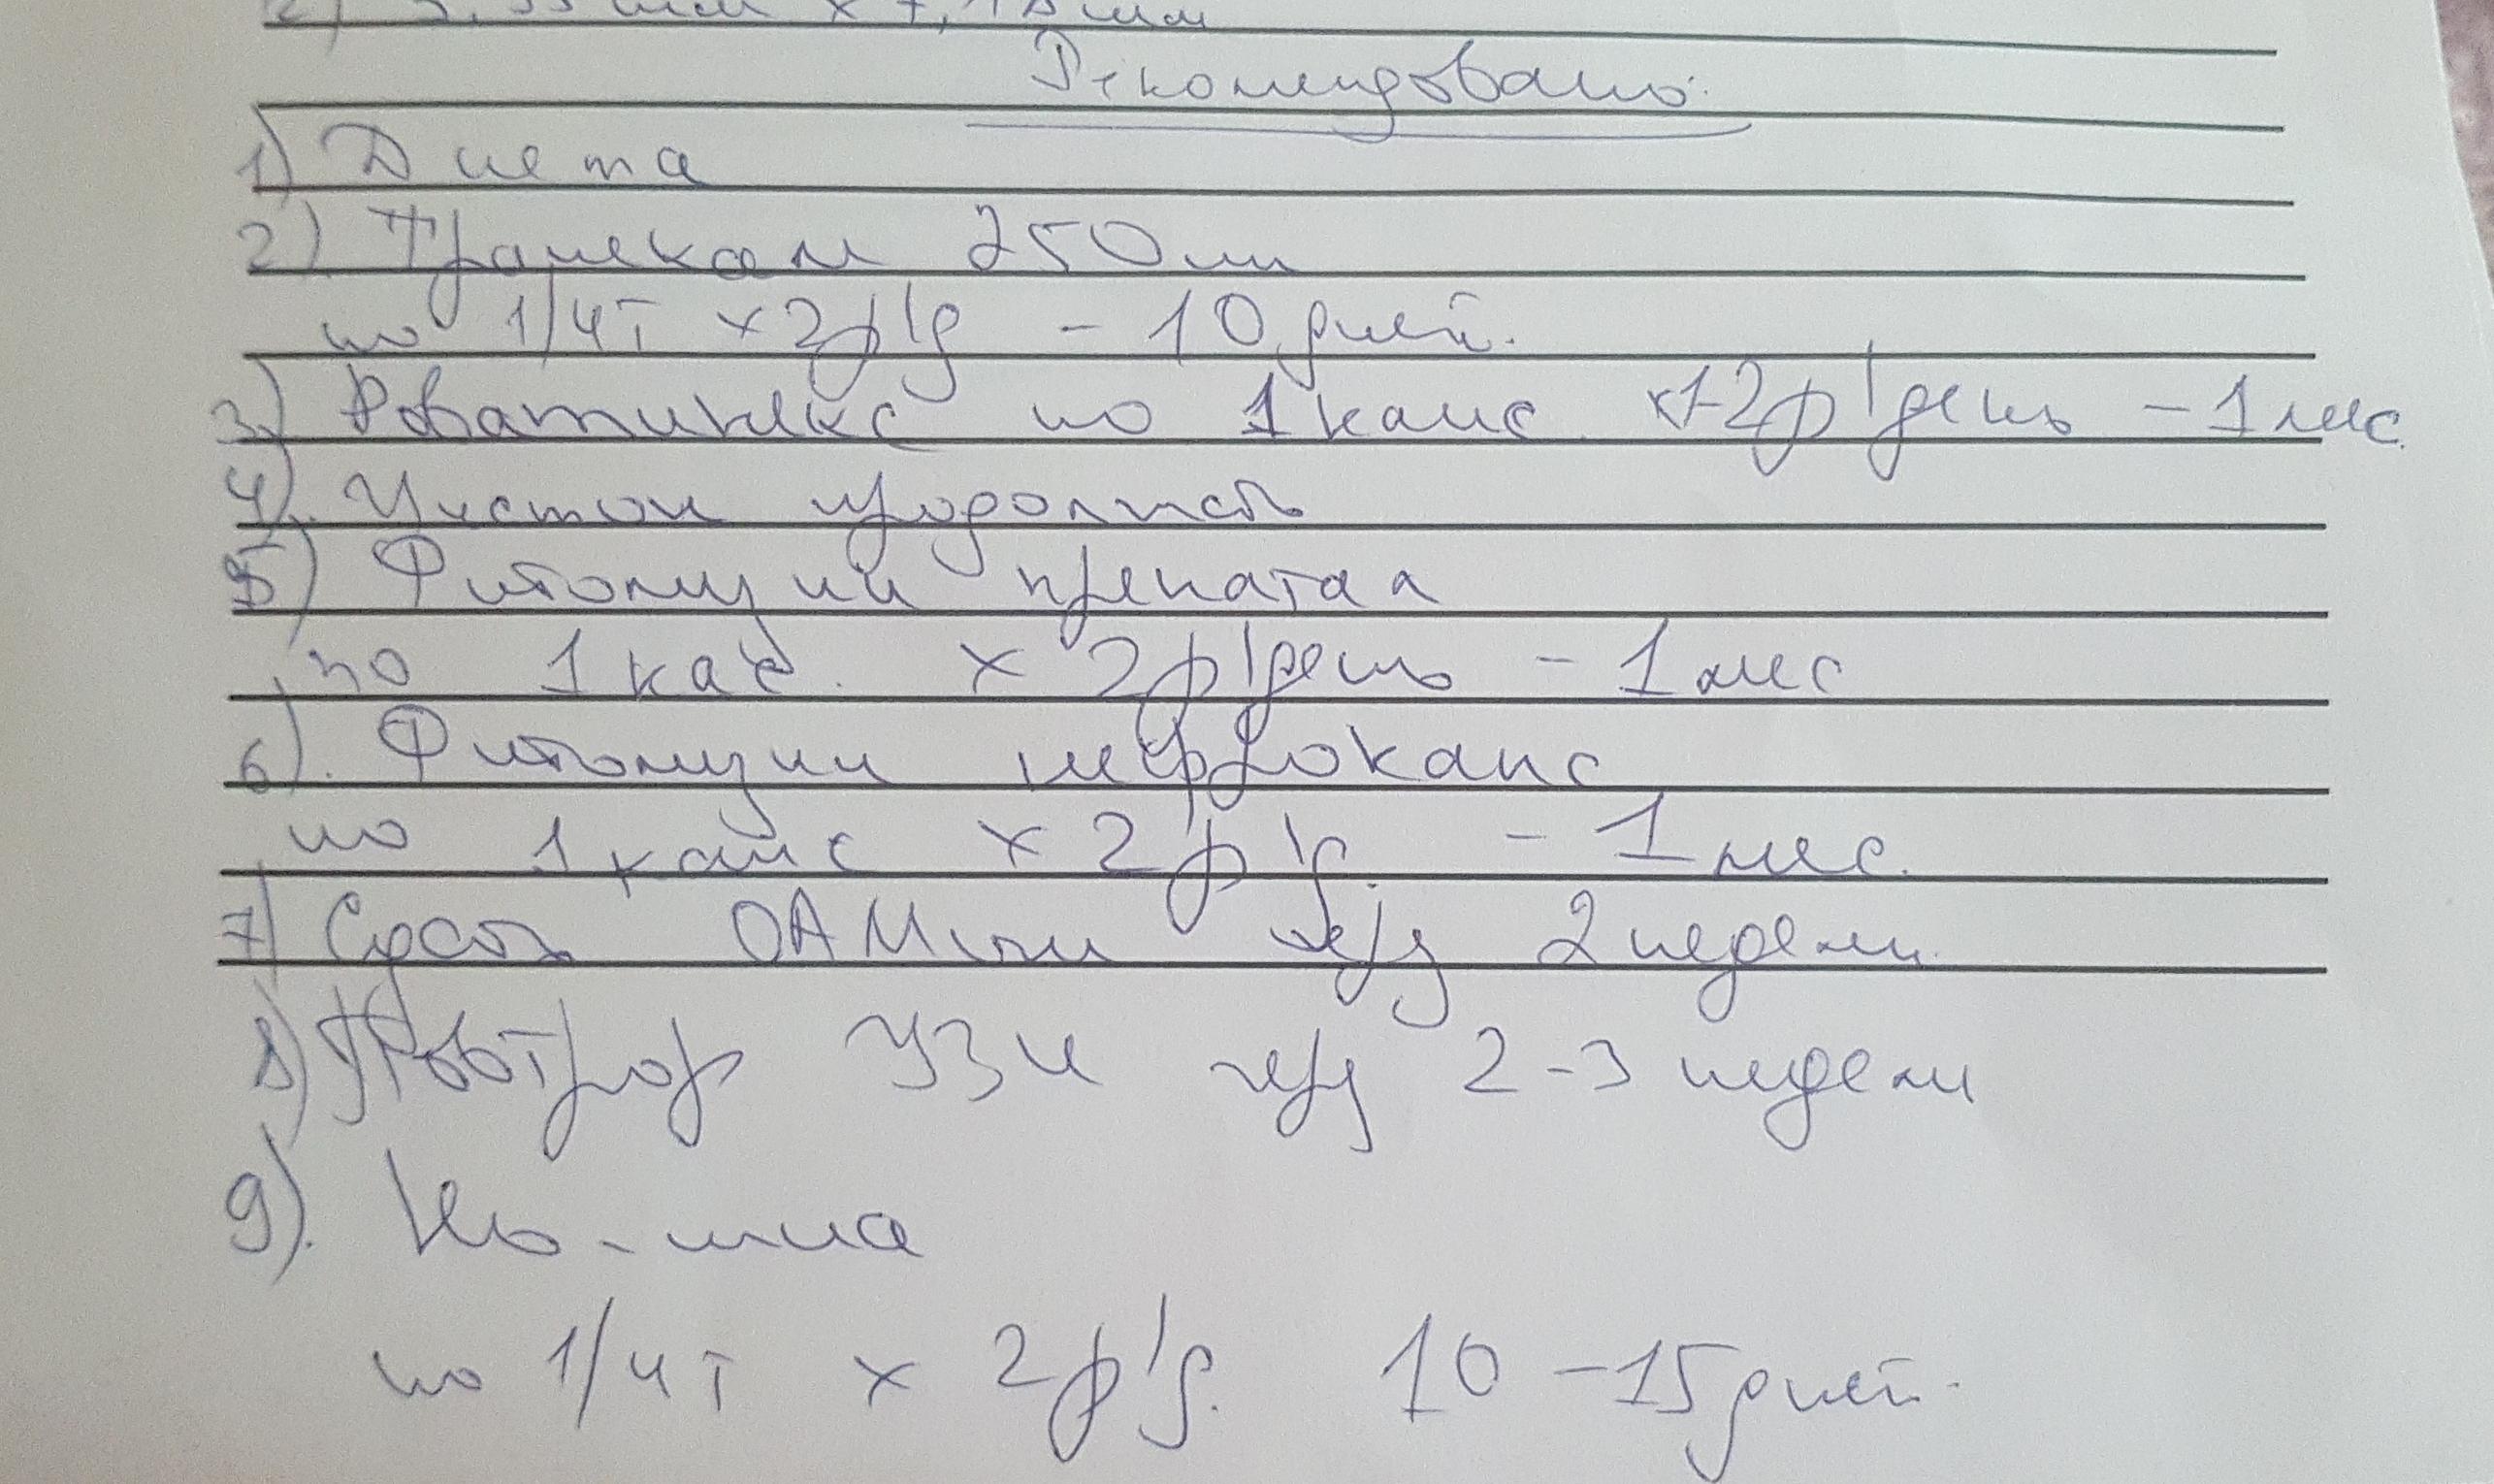 2) 5,55 мм х 7,18 мм
Рекомендовано:
1) Диета
2) Транексам 250 мг
по 1/4 т х 2 р/д - 10 дней.
3) Роватинекс по 1 капс х 1-2 р/день - 1 мес.
4) Цистон продолжать
5) Фитоэлит гепатал
по 1 кап. х 2 р/день - 1 мес
6). Фитоэлит нефрокапс
по 1 капс х 2 р/д. - 1 мес.
7) Сдать ОАМочи через 2 недели.
8) Повтор УЗИ через 2-3 недели
9). Но-шпа
по 1/4 т х 2 р/д. 10-15 дней.